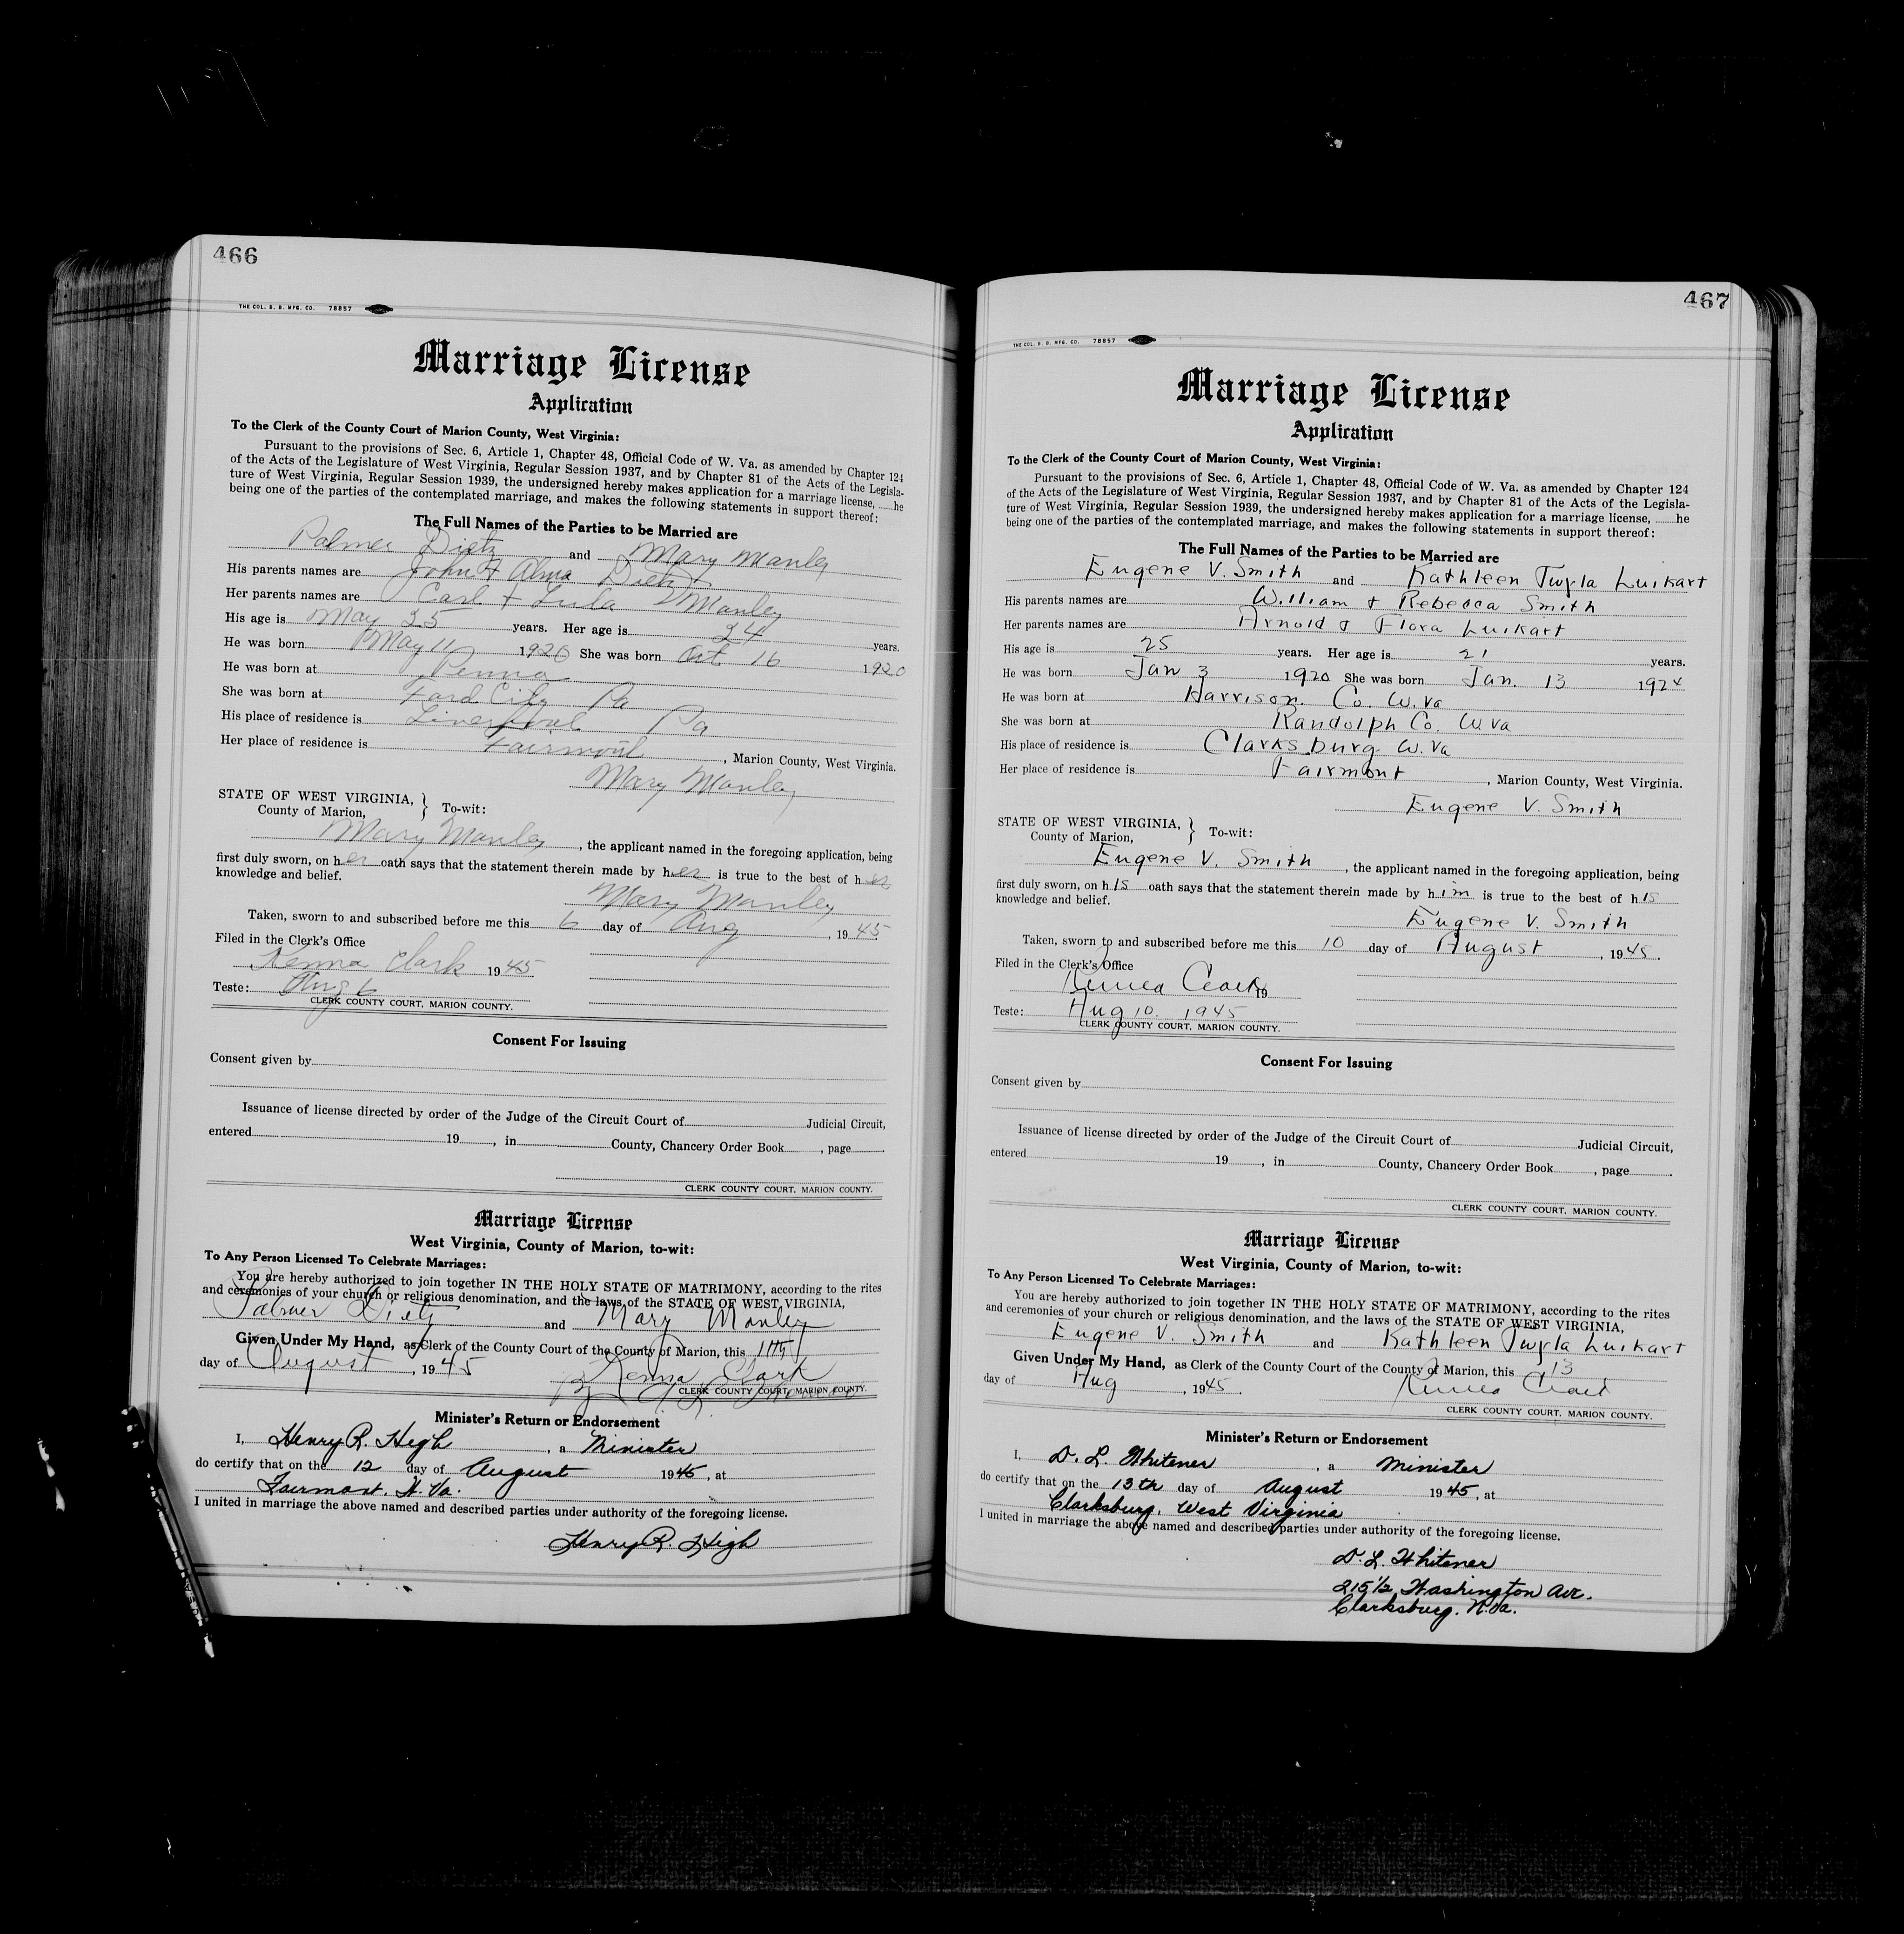 466
THE COL. B. B. MFG. CO. 78857
Marriage License
Application
To the Clerk of the County Court of Marion County, West Virginia:
Pursuant to the provisions of Sec. 6, Article 1, Chapter 48, Official Code of W. Va. as amended by Chapter 124
of the Acts of the Legislature of West Virginia, Regular Session 1937, and by Chapter 81 of the Acts of the Legisla-
ture of West Virginia, Regular Session 1939, the undersigned hereby makes application for a marriage license, he
being one of the parties of the contemplated marriage, and makes the following statements in support thereof:
The Full Names of the Parties to be Married are
Palmer Dietz and Mary Manley
His parents names are John & Alma Dietz
Her parents names are Carl & Lula Manley
His age is May 25 years. Her age is 24 years.
He was born May 11 1920 She was born Oct 16 1920
He was born at Penna
She was born at Ford City Pa
His place of residence is Liverpool Pa
Her place of residence is Fairmont, Marion County, West Virginia.
Mary Manley
STATE OF WEST VIRGINIA,
County of Marion, } To-wit:
Mary Manley, the applicant named in the foregoing application, being
first duly sworn, on her oath says that the statement therein made by her is true to the best of her
knowledge and belief.
Mary Manley
Taken, sworn to and subscribed before me this 6 day of Aug, 1945.
Filed in the Clerk's Office
Kenna Clark 1945
Teste: Aug 6
CLERK COUNTY COURT, MARION COUNTY.
Consent For Issuing
Consent given by
Issuance of license directed by order of the Judge of the Circuit Court of Judicial Circuit,
entered 19, in County, Chancery Order Book, page.
CLERK COUNTY COURT, MARION COUNTY.
Marriage License
West Virginia, County of Marion, to-wit:
To Any Person Licensed To Celebrate Marriages:
You are hereby authorized to join together IN THE HOLY STATE OF MATRIMONY, according to the rites
and ceremonies of your church or religious denomination, and the laws of the STATE OF WEST VIRGINIA,
Palmer Dietz and Mary Manley
Given Under My Hand, as Clerk of the County Court of the County of Marion, this 11th
day of August, 1945
Kenna Clark
By
CLERK COUNTY COURT, MARION COUNTY.
Minister's Return or Endorsement
I, Henry R. High, a Minister
do certify that on the 12 day of August 1945, at
Fairmont, W. Va.
I united in marriage the above named and described parties under authority of the foregoing license.
Henry R. High
467
THE COL. B. B. MFG. CO. 78857
Marriage License
Application
To the Clerk of the County Court of Marion County, West Virginia:
Pursuant to the provisions of Sec. 6, Article 1, Chapter 48, Official Code of W. Va. as amended by Chapter 124
of the Acts of the Legislature of West Virginia, Regular Session 1937, and by Chapter 81 of the Acts of the Legisla-
ture of West Virginia, Regular Session 1939, the undersigned hereby makes application for a marriage license, he
being one of the parties of the contemplated marriage, and makes the following statements in support thereof:
The Full Names of the Parties to be Married are
Eugene V. Smith and Kathleen Twyla Luikart
His parents names are William & Rebecca Smith
Her parents names are Arnold & Flora Luikart
His age is 25 years. Her age is 21 years.
He was born Jan 3 1920 She was born Jan. 13 1924
He was born at Harrison Co. W. Va
She was born at Randolph Co. W Va
His place of residence is Clarksburg W. Va
Her place of residence is Fairmont, Marion County, West Virginia.
Eugene V. Smith
STATE OF WEST VIRGINIA,
County of Marion, } To-wit:
Eugene V. Smith, the applicant named in the foregoing application, being
first duly sworn, on his oath says that the statement therein made by him is true to the best of his
knowledge and belief.
Eugene V. Smith
Taken, sworn to and subscribed before me this 10 day of August, 1945.
Filed in the Clerk's Office
Kenna Clark 19
Teste: Aug 10. 1945
CLERK COUNTY COURT, MARION COUNTY.
Consent For Issuing
Consent given by
Issuance of license directed by order of the Judge of the Circuit Court of Judicial Circuit,
entered 19, in County, Chancery Order Book, page.
CLERK COUNTY COURT, MARION COUNTY.
Marriage License
West Virginia, County of Marion, to-wit:
To Any Person Licensed To Celebrate Marriages:
You are hereby authorized to join together IN THE HOLY STATE OF MATRIMONY, according to the rites
and ceremonies of your church or religious denomination, and the laws of the STATE OF WEST VIRGINIA,
Eugene V. Smith and Kathleen Twyla Luikart
Given Under My Hand, as Clerk of the County Court of the County of Marion, this 13
day of Aug, 1945.
Kenna Clark
CLERK COUNTY COURT, MARION COUNTY.
Minister's Return or Endorsement
I, D. L. Whitener, a Minister
do certify that on the 13th day of August 1945, at
Clarksburg, West Virginia
I united in marriage the above named and described parties under authority of the foregoing license.
D. L. Whitener
215 1/2 Washington Ave.
Clarksburg, W. Va.